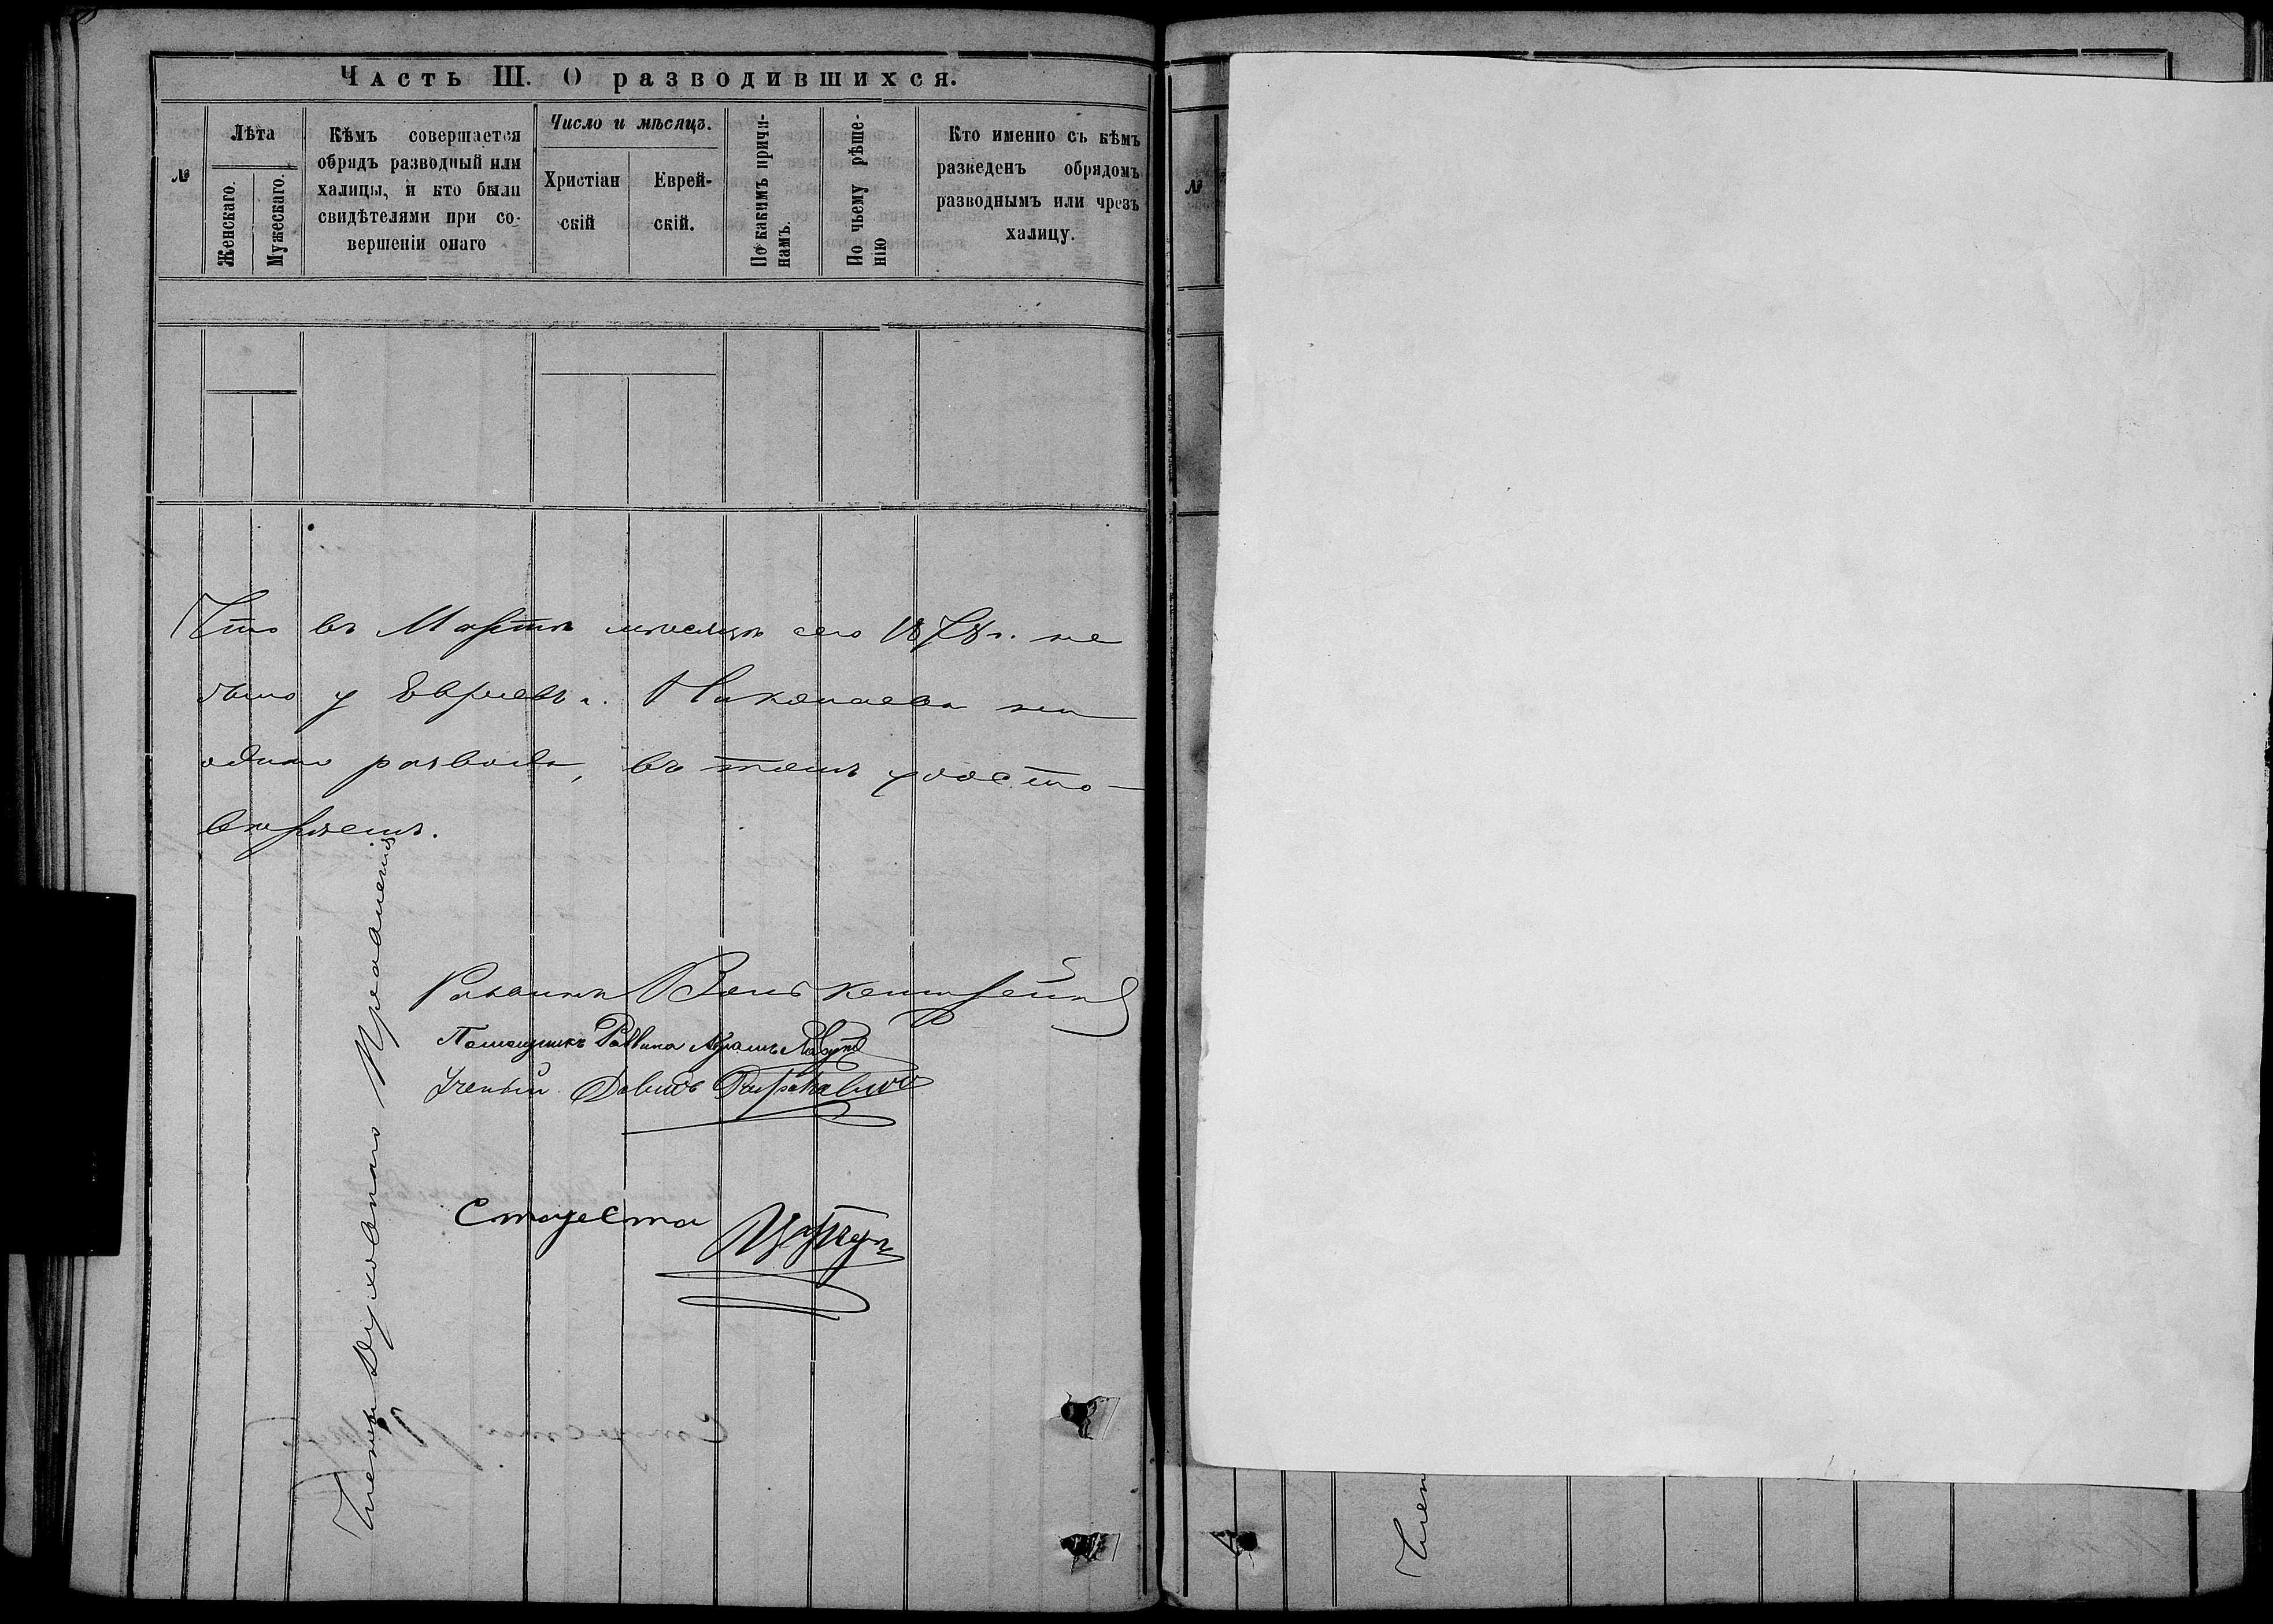 Часть III. О разводившихся.
№
Лѣта
Женскаго.
Мужескаго.
Кѣмъ совершается
обрядъ разводный или
халицы, и кто были
свидѣтелями при со-
вершеніи онаго
Число и мѣсяцъ.
Христіан
скій
Еврей-
скій.
По какимъ причи-
намъ.
По чьему рѣше-
нію
Кто именно съ кѣмъ
разведенъ обрядомъ
разводнымъ или чрезъ
халицу.
Что въ Мартѣ мѣсяцѣ сего 1878 г. не
было у Евреевъ г. Николаева ни
одного развода, въ томъ удосто-
вѣряемъ.
Раввинъ
Помощникъ Раввина Абрамъ
Ученый Давидъ
Староста
Члены Духовнаго Правленія
№
Член